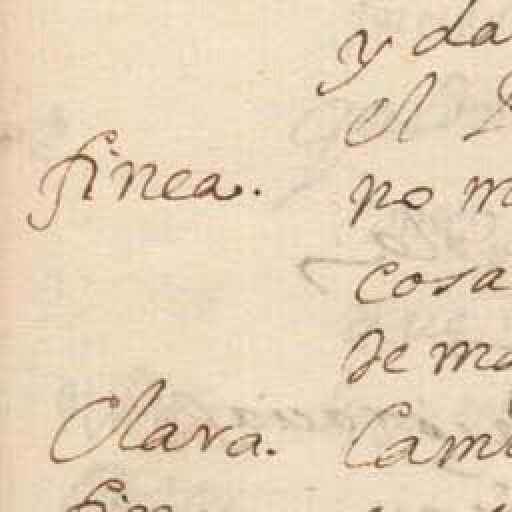 y da
el
finea. no m
cosa
de ma
Clara. Cam
fin